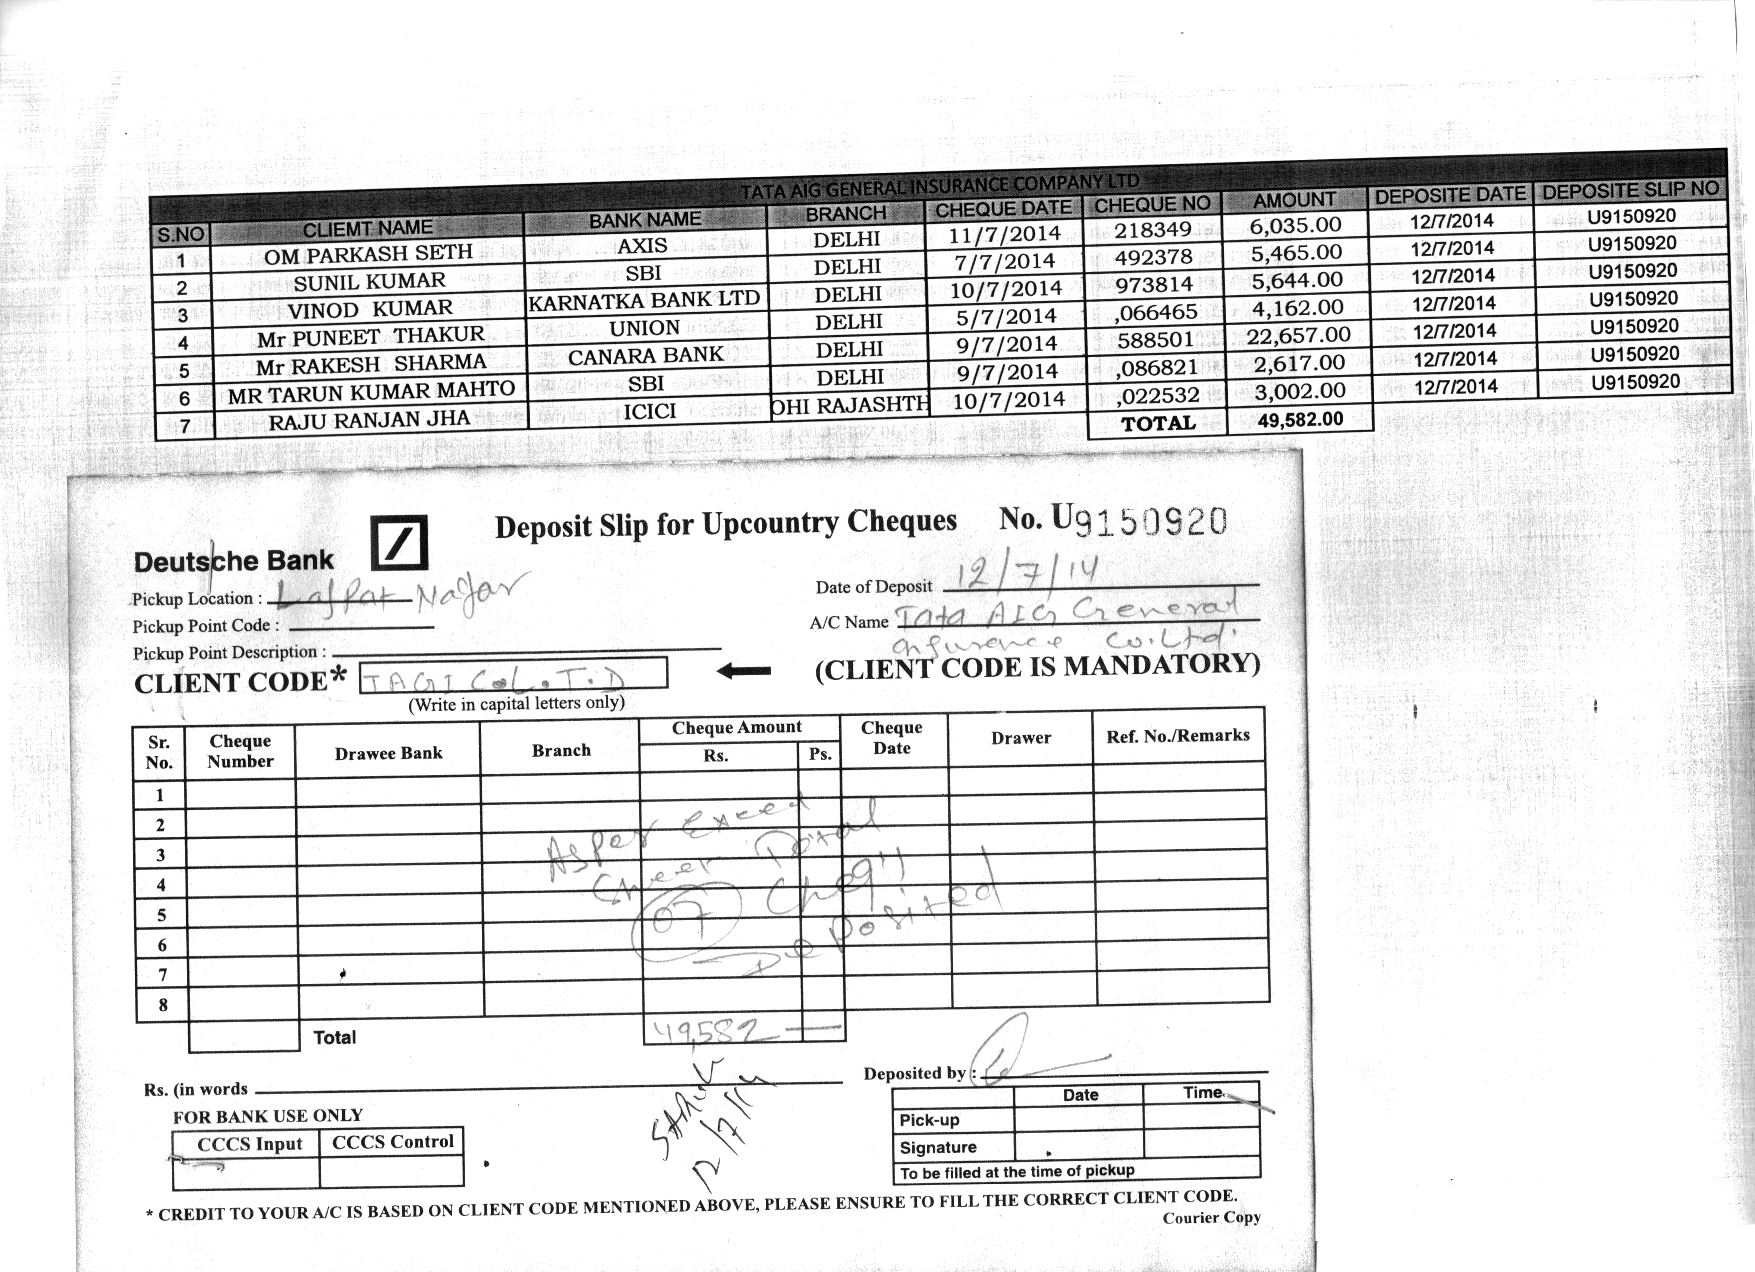 TATA AIG GENERAL INSURANCE COMPANY LTD
S.NO CLIEMT NAME BANK NAME BRANCH CHEQUE DATE CHEQUE NO AMOUNT DEPOSITE DATE DEPOSITE SLIP NO
1 OM PARKASH SETH AXIS DELHI 11/7/2014 218349 6,035.00 12/7/2014 U9150920
2 SUNIL KUMAR SBI DELHI 7/7/2014 492378 5,465.00 12/7/2014 U9150920
3 VINOD KUMAR KARNATKA BANK LTD DELHI 10/7/2014 973814 5,644.00 12/7/2014 U9150920
4 Mr PUNEET THAKUR UNION DELHI 5/7/2014 ,066465 4,162.00 12/7/2014 U9150920
5 Mr RAKESH SHARMA CANARA BANK DELHI 9/7/2014 588501 22,657.00 12/7/2014 U9150920
6 MR TARUN KUMAR MAHTO SBI DELHI 9/7/2014 ,086821 2,617.00 12/7/2014 U9150920
7 RAJU RANJAN JHA ICICI OHI RAJASHTH 10/7/2014 ,022532 3,002.00 12/7/2014 U9150920
TOTAL 49,582.00
Deposit Slip for Upcountry Cheques No. U9150920
Deutsche Bank
Date of Deposit 12/7/14
Pickup Location : Lajpat Nagar
A/C Name Tata AIG General
Pickup Point Code :
insurance Co. Ltd.
Pickup Point Description :
CLIENT CODE* TAGI Co L.T.D (CLIENT CODE IS MANDATORY)
(Write in capital letters only)
Sr. No. Cheque Number Drawee Bank Branch Cheque Amount Rs. Ps. Cheque Date Drawer Ref. No./Remarks
1
2
3
4
5
6
7
8
As per Excel
Sheet Total
07 Chq's
Deposited
Total 49,582 —
Rs. (in words
Deposited by :
12/7/14
FOR BANK USE ONLY
CCCS Input CCCS Control
Date Time
Pick-up
Signature
To be filled at the time of pickup
* CREDIT TO YOUR A/C IS BASED ON CLIENT CODE MENTIONED ABOVE, PLEASE ENSURE TO FILL THE CORRECT CLIENT CODE.
Courier Copy